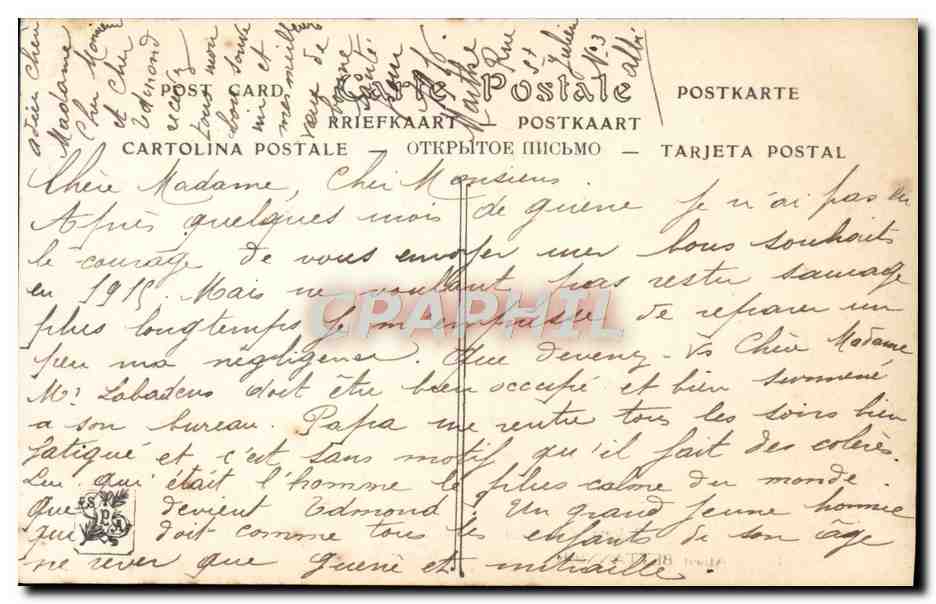 adieu Chère
Madame
Cher Monsieur
et Cher
Edmond
recevez
tous nos
bons souhaits
et
meilleurs
vœux de
bonne
santé
Marthe
Rue
St
Julien
N° 3
albi
POST CARD Carte Postale POSTKARTE
BRIEFKAART — POSTKAART
CARTOLINA POSTALE — ОТКРЫТОЕ ПИСЬМО — TARJETA POSTAL
Chère Madame, Cher Monsieur
Après quelques mois de guerre je n'ai pas eu
le courage de vous envoyer mes bons souhaits
en 1915. Mais ne voulant pas rester sauvage
plus longtemps je m'empresse de reparer un
peu ma négligense. Que devenez-vs Chère Madame
Mr Labadens doit être bien occupé et bien surmené
a son bureau. Papa me rentre tous les soirs bien
fatigué et c'est sans motif qu'il fait des colères.
Lui qui était l'homme le plus calme du monde.
Que devient Edmond. Un grand jeune homme
qui doit comme tous les enfants de son âge
ne rever que guerre et mitraille.
CPAPHIL